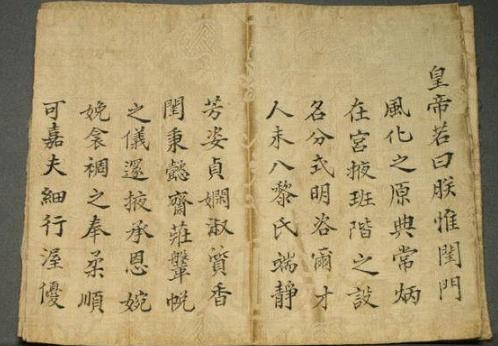 皇帝若曰朕惟閨門
風化之原典常炳
在宮掖班階之設
名分式明咨爾才
人未八黎氏端靜
芳姿貞嫻淑質香
閨秉懿齋莊鞶帨
之儀邇掖承恩婉
娩衾裯之奉柔順
可嘉夫細行渥優